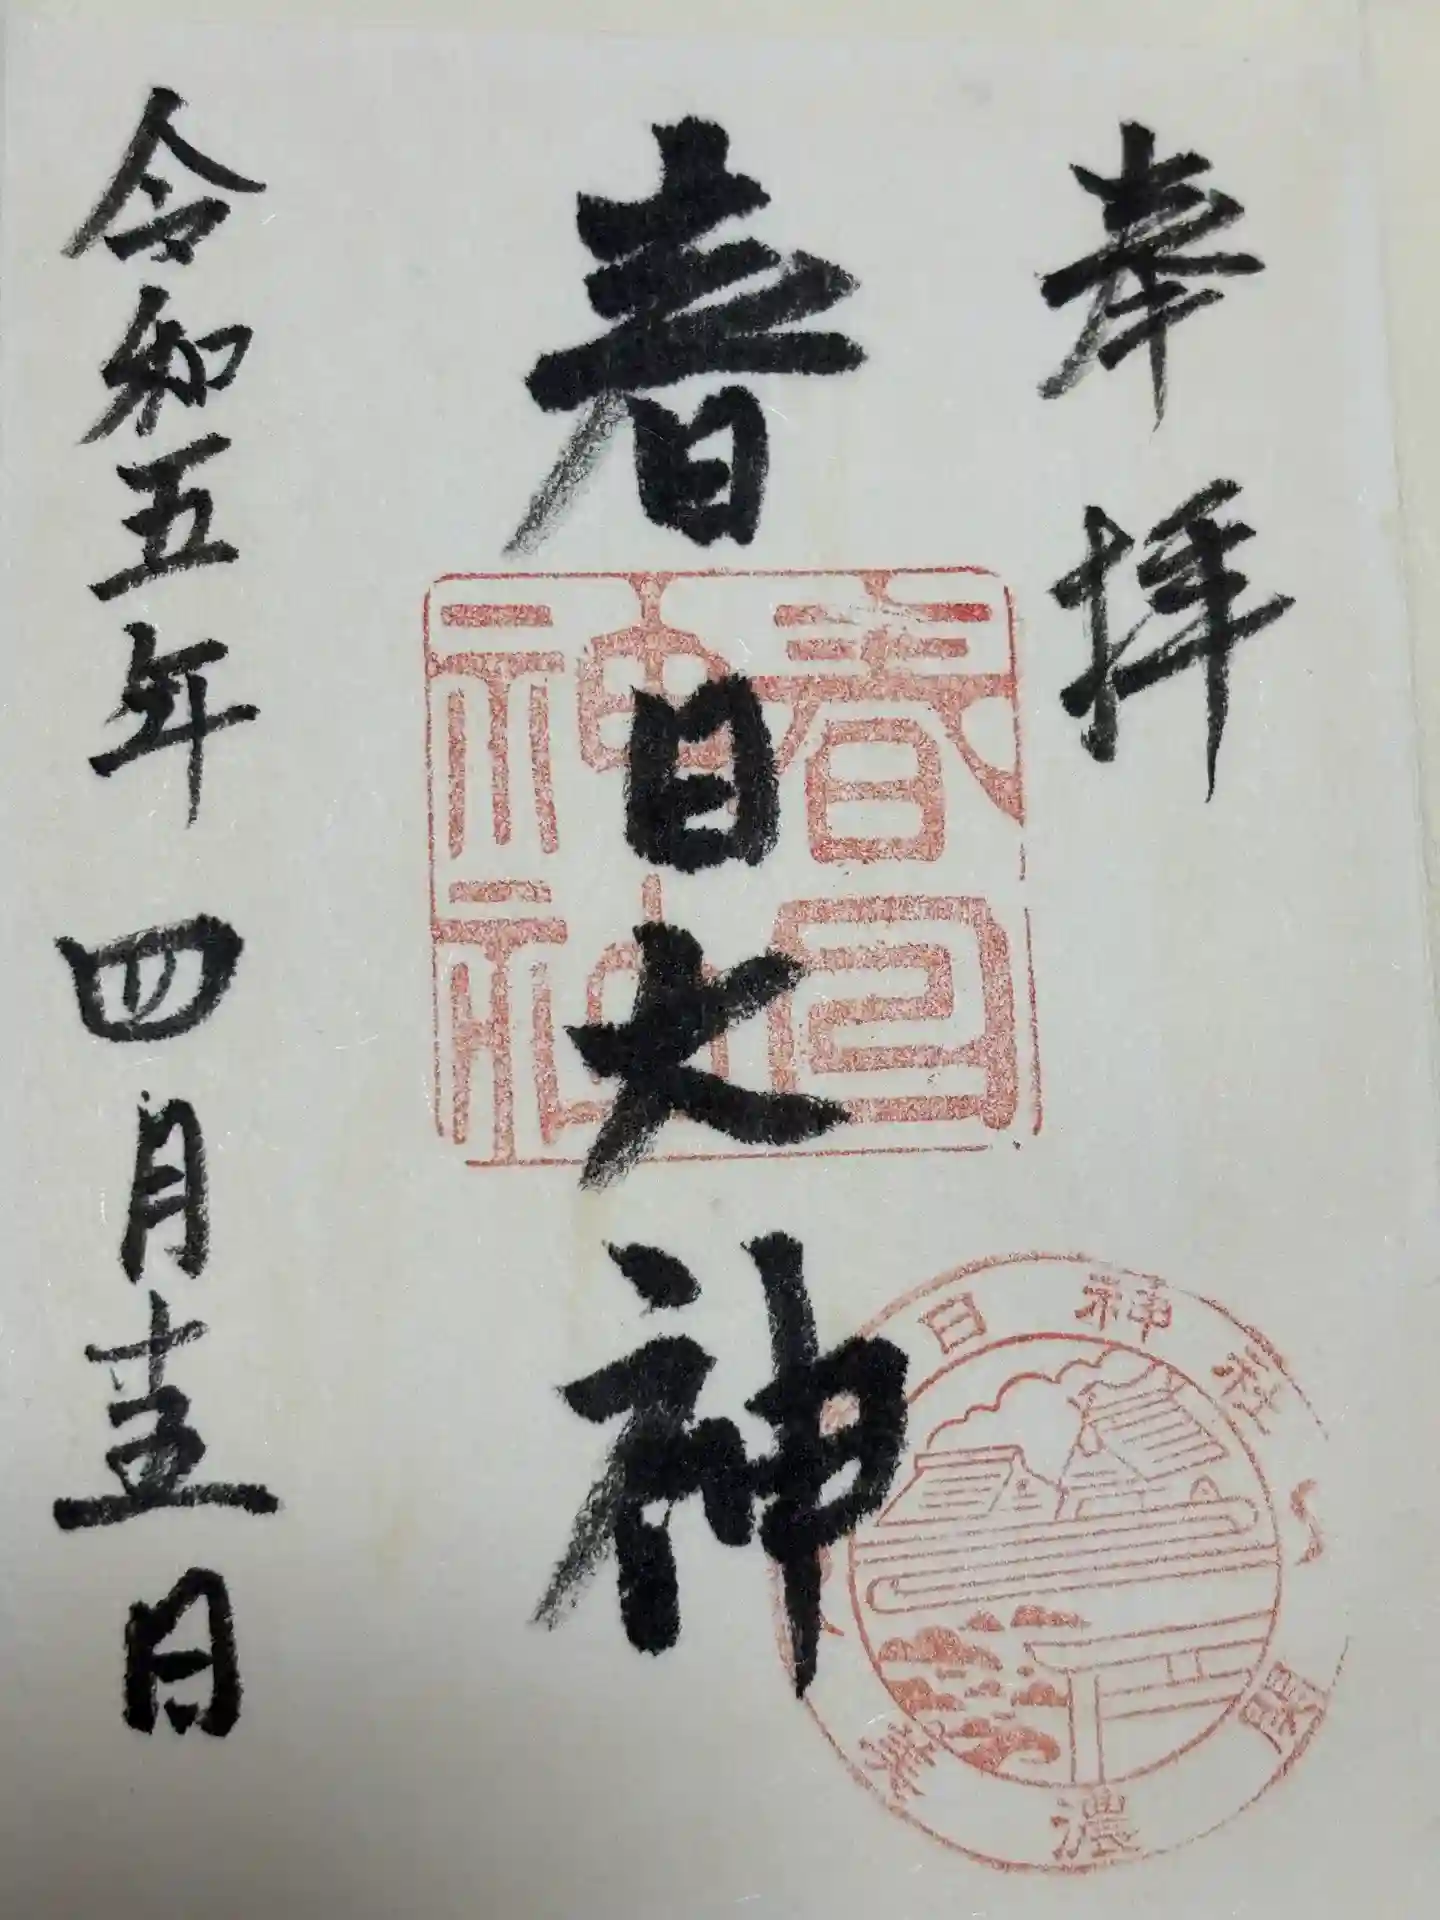 奉拝
春日大神
令和五年四月十五日
春日
神社
日神社
美濃関